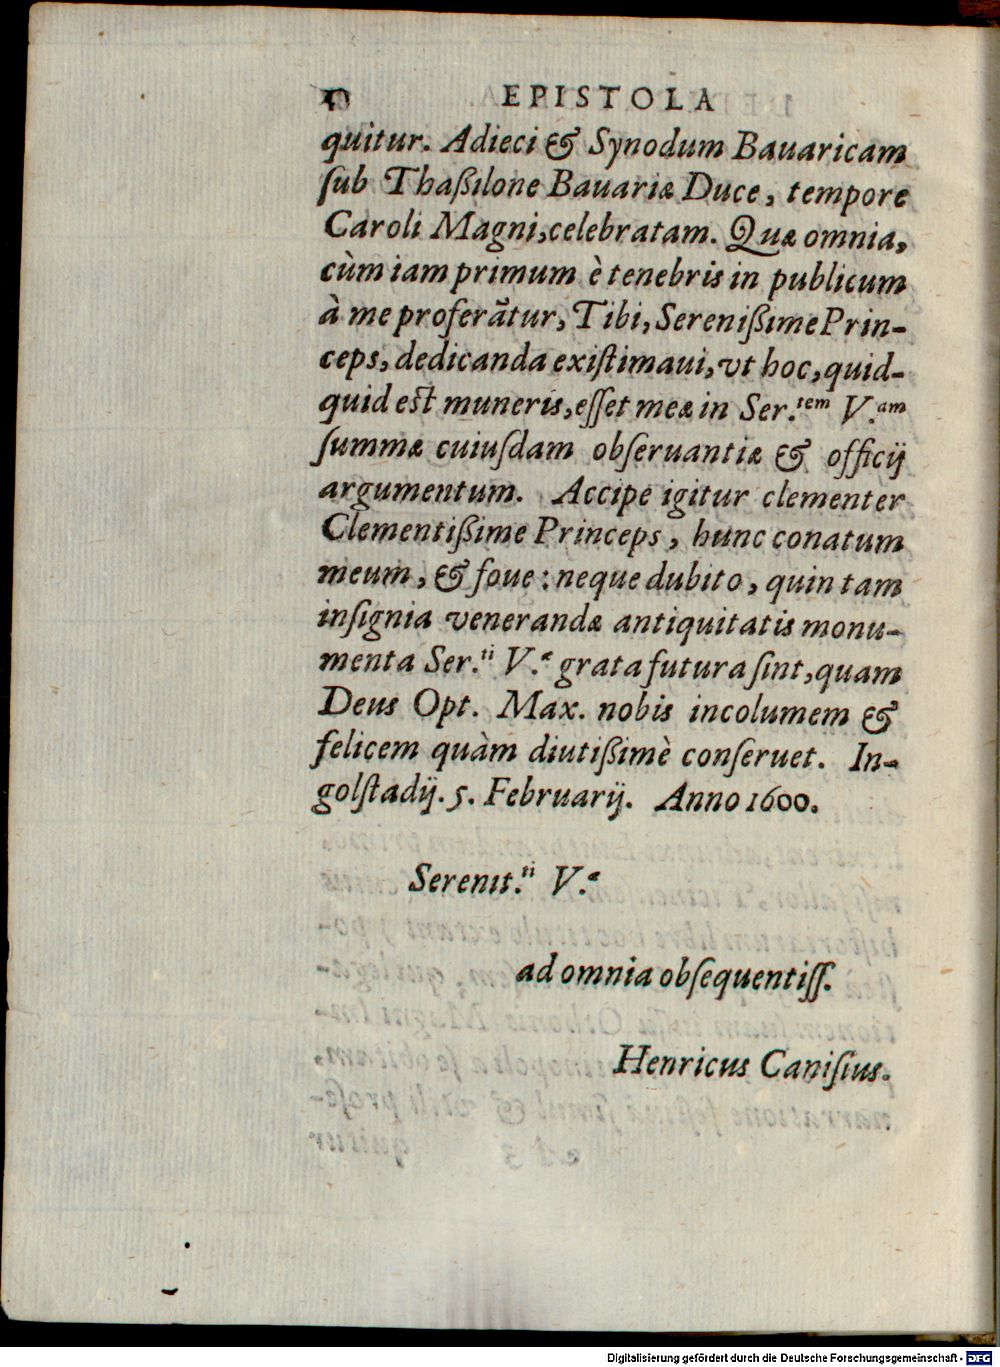 EPISTOLA
quitur. Adieci & Synodum Bauaricam
ſub Thaßilone Bauariæ Duce, tempore
Caroli Magni, celebratam. Quæ omnia,
cùm iam primum è tenebris in publicum
à me proferãtur, Tibi, Serenißime Prin-
ceps, dedicanda exiſtimaui, vt hoc, quid-
quid eſt muneris, eſſet meæ in Ser.tem V.am
ſummæ cuiuſdam obſeruantiæ & officij
argumentum. Accipe igitur clementer
Clementißime Princeps, hunc conatum
meum, & foue: neque dubito, quin tam
inſignia venerandæ antiquitatis monu-
menta Ser.ti V.æ grata futura ſint, quam
Deus Opt. Max. nobis incolumem &
felicem quàm diutißimè conſeruet. In-
golſtadij. 5. Februarij. Anno 1600.
Serenit.ti V.æ
ad omnia obſequentiſſ.
Henricus Caniſius.
Digitalisierung gefördert durch die Deutsche Forschungsgemeinschaft - DFG